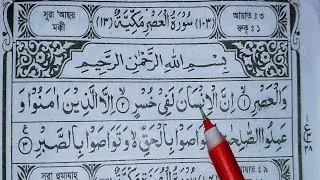 সূরা 'আছর
মক্কী
(١٠٣) سُوْرَةُ الْعَصْرِ مَكِّيَّةٌ (١٣)
আয়াত : ৩
রুকূ : ১
بِسْمِ اللّٰهِ الرَّحْمٰنِ الرَّحِيْمِ
وَالْعَصْرِ ۙ﴿١﴾ اِنَّ الْاِنْسَانَ لَفِىْ خُسْرٍ ۙ﴿٢﴾ اِلَّا الَّذِيْنَ اٰمَنُوْا وَ
عَمِلُوا الصّٰلِحٰتِ وَتَوَاصَوْا بِالْحَقِّ ۙ وَتَوَاصَوْا بِالصَّبْرِ ﴿٣﴾
সূরা হুমাযাহ্
আয়াত : ৯